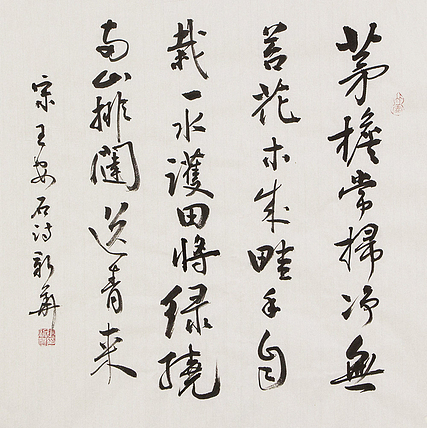 茅檐常掃净無
苔花木成畦手自
栽一水護田将绿繞
两山排闥送青来
宋王安石诗